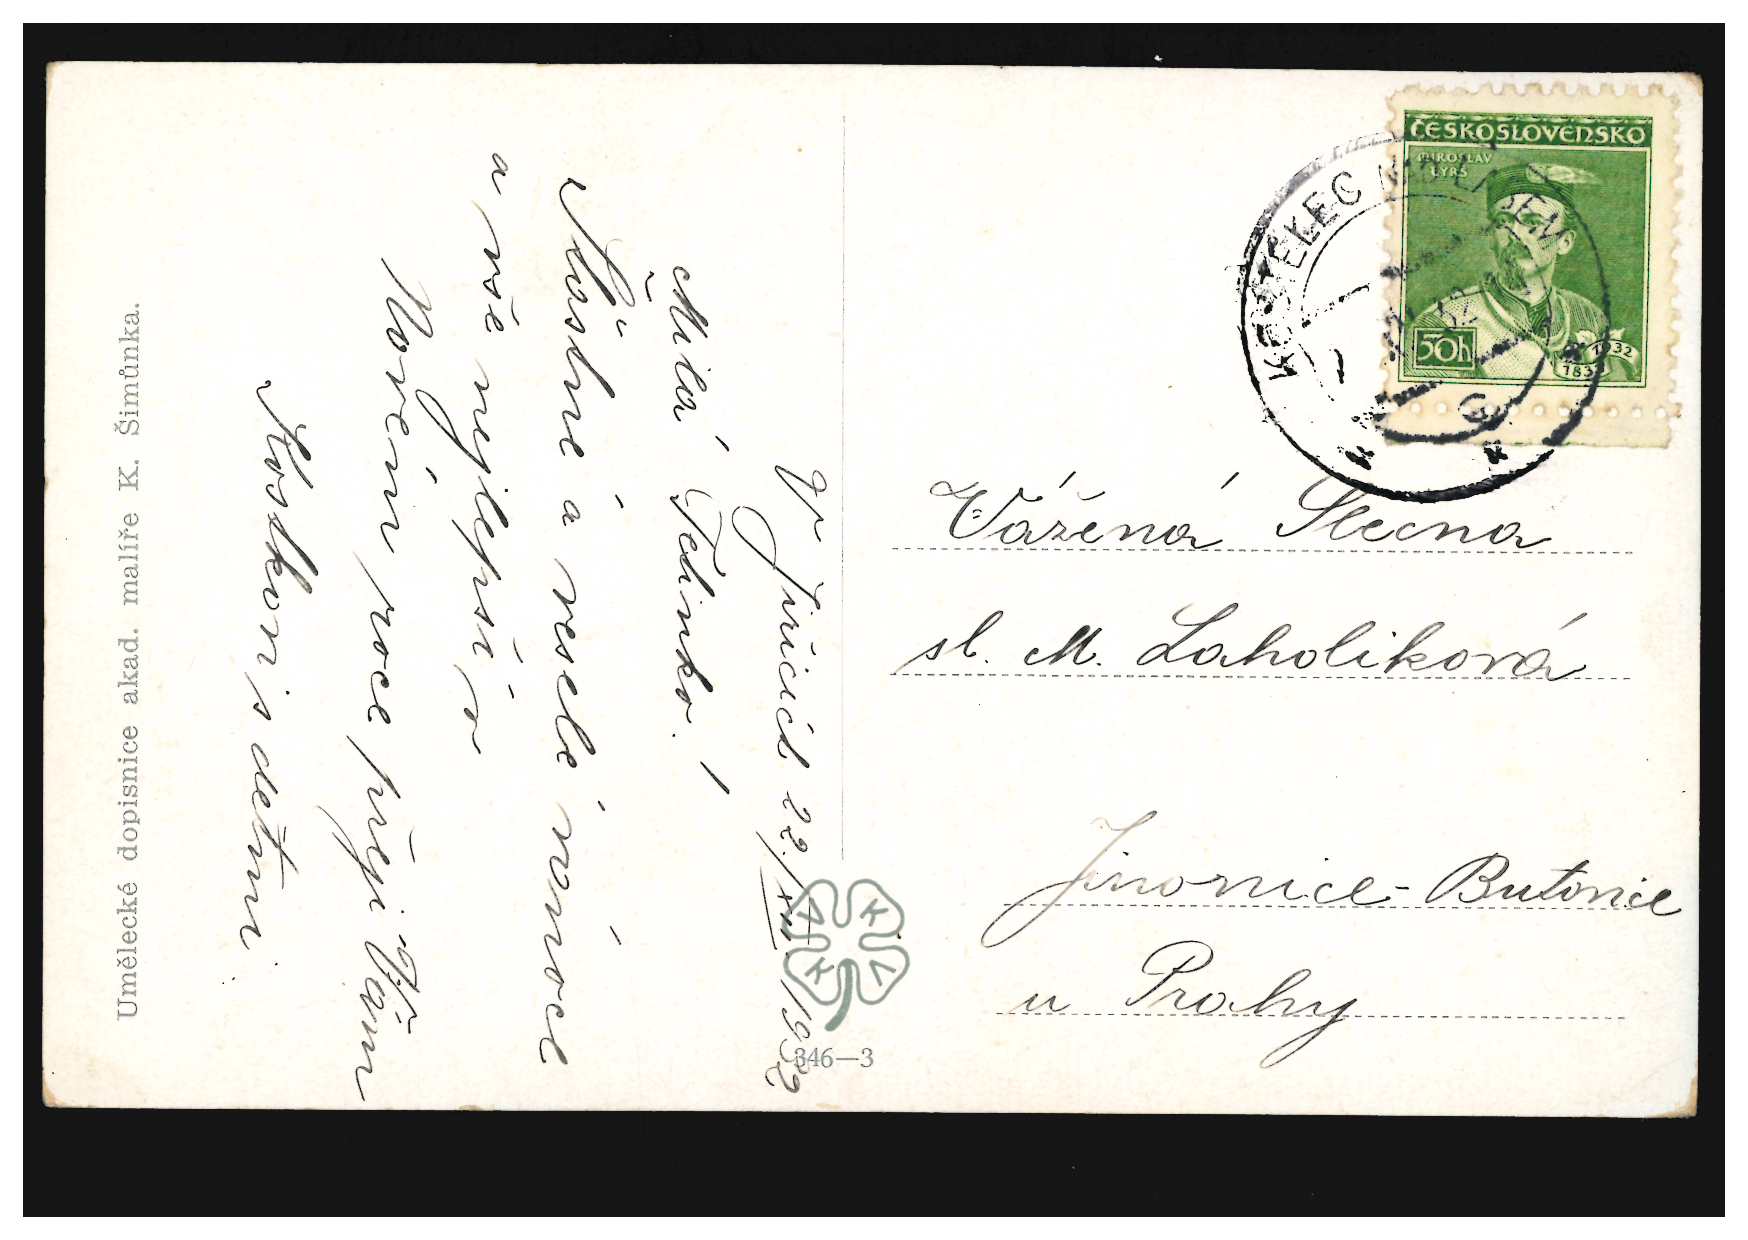 Umělecké dopisnice akad. malíře K. Šimůnka.
V Jiřicích 22./XII. 1932
Milá Fědinko!
Šťastné a veselé vánoce
a vše nejlepší v
Novém roce přeji Vám
Kostkovi s dětmi.
346—3
ČESKOSLOVENSKO
MIROSLAV
TYRŠ
50h
1832
1932
KOSTELEC NAD LABEM
Vážená Slečna
sl. M. Laholíková
Jinonice-Butovice
u Prahy